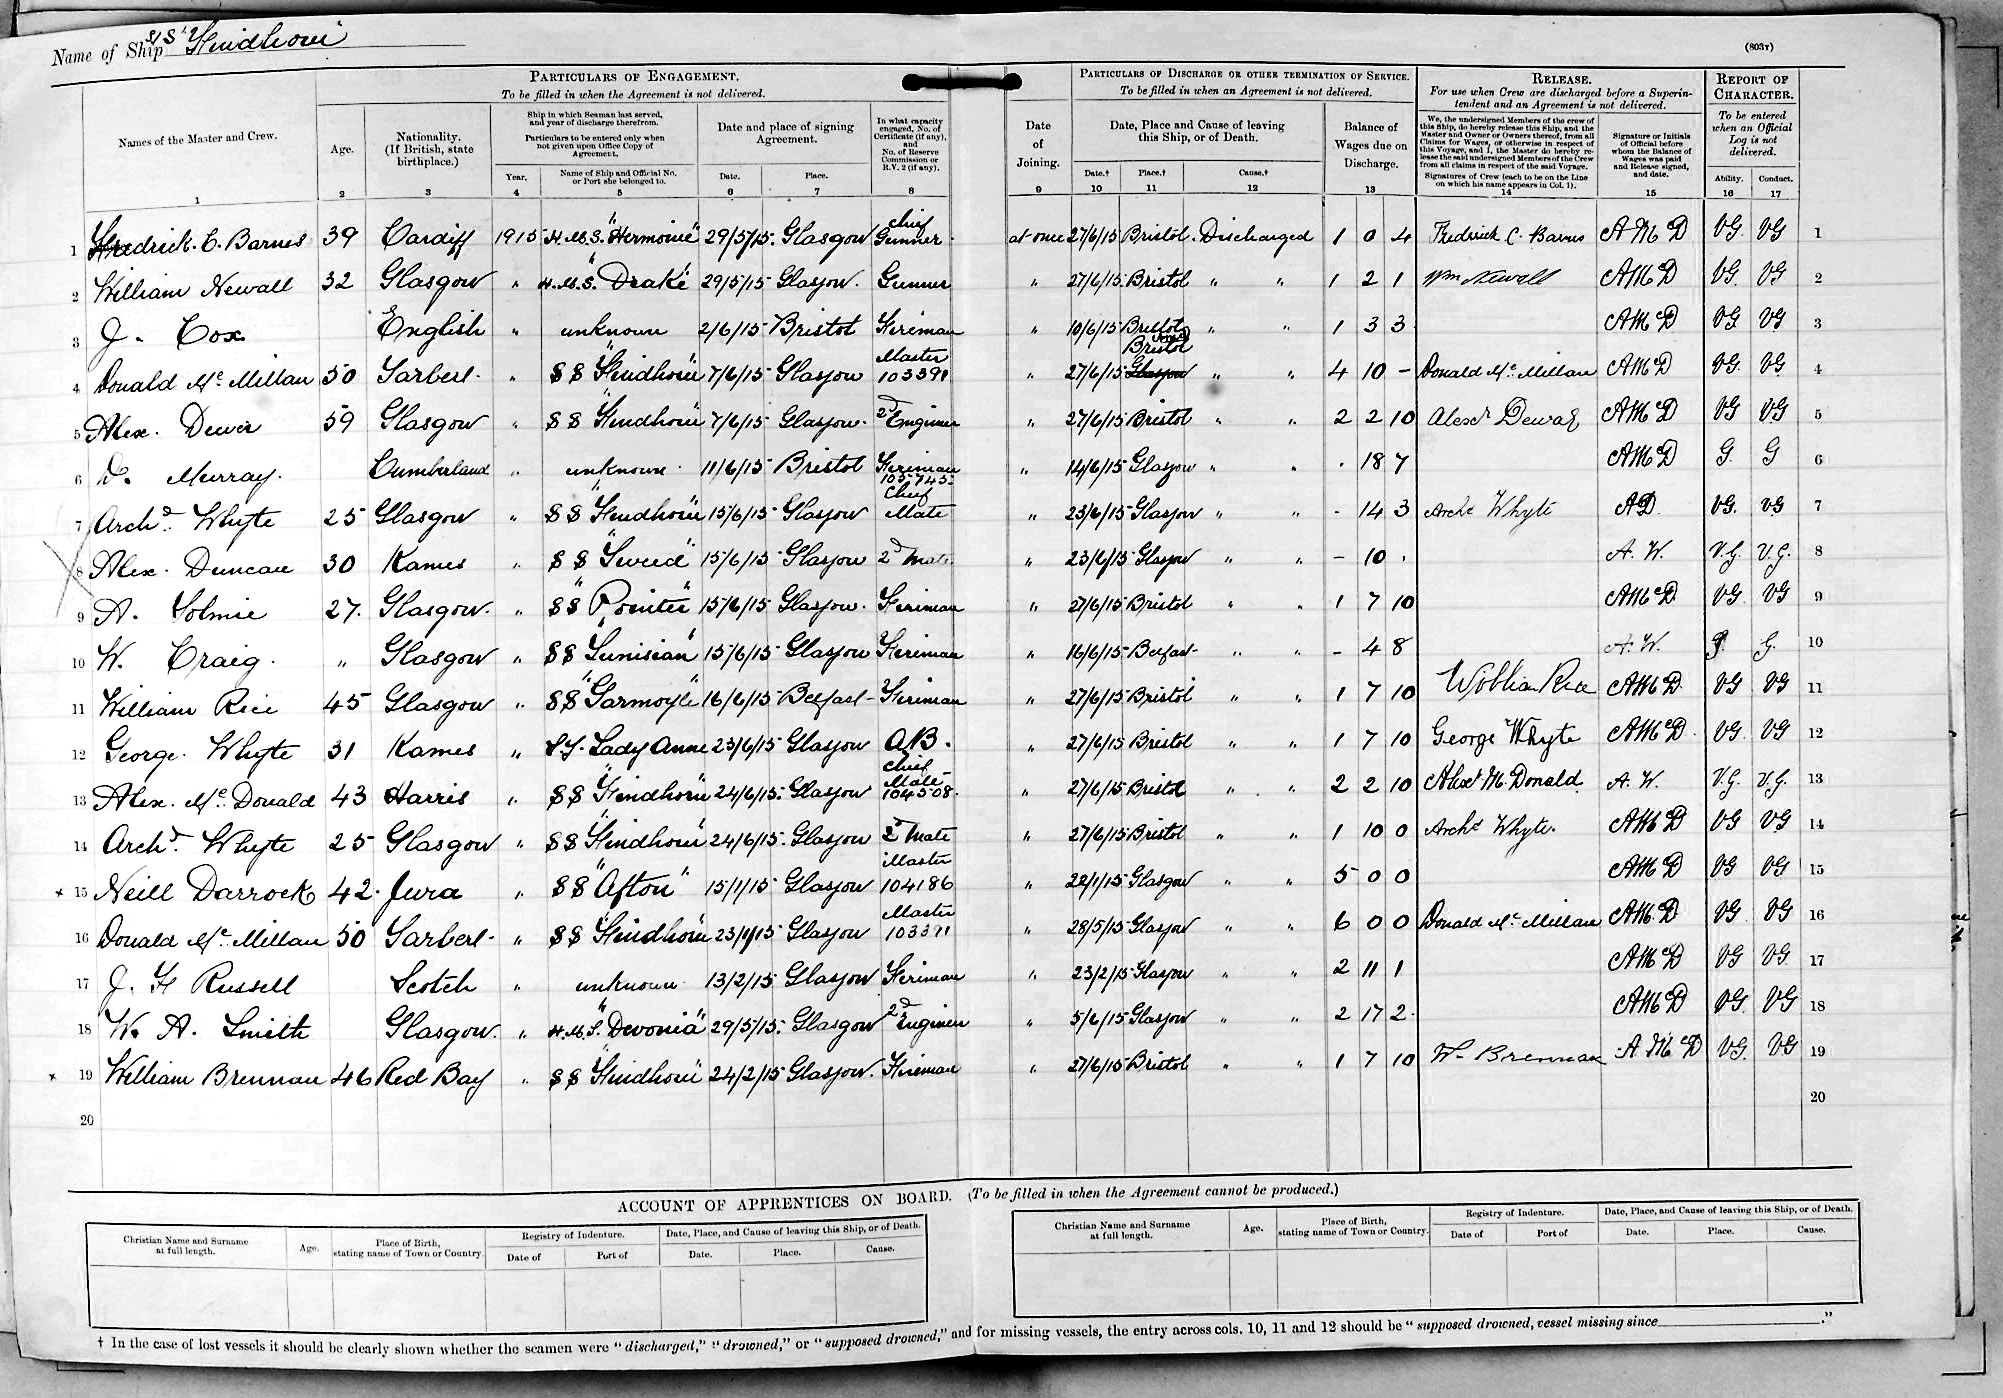 Name of Ship S/S "Findhorn"
(803Y)
PARTICULARS OF ENGAGEMENT.
To be filled in when the Agreement is not delivered.
PARTICULARS OF DISCHARGE OR OTHER TERMINATION OF SERVICE.
To be filled in when an Agreement is not delivered.
RELEASE.
For use when Crew are discharged before a Superin-
tendent and an Agreement is not delivered.
REPORT OF
CHARACTER.
To be entered
when an Official
Log is not
delivered.
Names of the Master and Crew.
Age.
Nationality.
(If British, state
birthplace.)
Ship in which Seaman last served,
and year of discharge therefrom.
Particulars to be entered only when
not given upon Office Copy of
Agreement.
Year.
Name of Ship and Official No.
or Port she belonged to.
Date and place of signing
Agreement.
Date.
Place.
In what capacity
engaged, No. of
Certificate (if any),
and
No. of Reserve
Commission or
R.V. 2 (if any).
Date
of
Joining.
Date, Place and Cause of leaving
this Ship, or of Death.
Date.†
Place.†
Cause.†
Balance of
Wages due on
Discharge.
We, the undersigned Members of the crew of
this Ship, do hereby release this Ship, and the
Master and Owner or Owners thereof, from all
Claims for Wages, or otherwise in respect of
this Voyage, and I, the Master do hereby re-
lease the said undersigned Members of the Crew
from all claims in respect of the said Voyage.
Signatures of Crew (each to be on the Line
on which his name appears in Col. 1).
Signature or Initials
of Official before
whom the Balance of
Wages was paid
and Release signed,
and date.
Ability.
Conduct.
1 2 3 4 5 6 7 8 9 10 11 12 13 14 15 16 17
1 Fredrick. C. Barnes 39 Cardiff 1915 H.M.S. "Hermione" 29/5/15. Glasgow Chief Gunner. at once 27/6/15 Bristol. Discharged 1 0 4 Fredrick C. Barnes A McD VG. VG 1
2 William Newall 32 Glasgow " H.M.S. "Drake" 29/5/15 Glasgow. Gunner " 27/6/15 Bristol " " 1 2 1 Wm Newall AMcD VG. VG 2
3 J. Cox English " unknown 2/6/15 Bristol Fireman " 10/6/15 " " 1 3 3 AMcD VG VG 3
4 Donald McMillan 50 Tarbert. " SS "Findhorn" 7/6/15 Glasgow Master 103391 " 27/6/15 Bristol Glasgow " " 4 10 - Donald McMillan AMcD VG VG 4
5 Alex. Dewer 59 Glasgow " SS "Findhorn" 7/6/15 Glasgow. 2d Engineer " 27/6/15 Bristol " " 2 2 10 Alexr Dewar AMcD VG VG 5
6 D. Murray. Cumberland " unknown. 11/6/15 Bristol Fireman " 14/6/15 Glasgow " " . 18 7 AMcD G. G 6
7 Archd. Whyte 25 Glasgow " SS "Findhorn" 15/6/15 Glasgow 105745. Chief Mate " 23/6/15 Glasgow " " - 14 3 Archd Whyte AD. VG. VG 7
8 Alex. Duncan 30 Kames " SS "Tweed" 15/6/15 Glasgow 2d Mate " 23/6/15 Glasgow " " - 10 . A. W. V.G. V.G. 8
9 A. Tolmie 27. Glasgow. " SS "Pointer" 15/6/15 Glasgow. Fireman " 27/6/15 Bristol " " 1 7 10 AMcD VG VG 9
10 W. Craig. " Glasgow " SS "Tunisian" 15/6/15 Glasgow Fireman " 16/6/15 Belfast " " - 4 8 A. W. G. G. 10
11 William Rice 45 Glasgow " SS "Garmoyle" 16/6/15 Belfast Fireman " 27/6/15 Bristol " " 1 7 10 William Rice AMcD. VG VG 11
12 George. Whyte 31 Kames " S.Y. Lady Anne 23/6/15 Glasgow A.B. " 27/6/15 Bristol " " 1 7 10 George Whyte AMcD. VG VG 12
13 Alex. McDonald 43 Harris " SS "Findhorn" 24/6/15. Glasgow Chief Mate 104508. " 27/6/15 Bristol " " 2 2 10 Alexr McDonald A. W. V.G. V.G. 13
14 Archd. Whyte 25 Glasgow " SS "Findhorn" 24/6/15. Glasgow 2d Mate " 27/6/15 Bristol " " 1 10 0 Archd Whyte. AMcD VG VG 14
x 15 Neill Darroch 42. Jura " SS "Afton" 15/1/15 Glasgow Master 104186 " 22/1/15 Glasgow " " 5 0 0 AMcD VG VG 15
16 Donald McMillan 50 Tarbert- " SS "Findhorn" 23/1/15 Glasgow Master 103391 " 28/5/15 Glasgow " " 6 0 0 Donald McMillan AMcD VG VG 16
17 J. F Russell Scotch " unknown 13/2/15 Glasgow Fireman " 23/2/15 Glasgow " " 2 11 1 AMcD VG VG. 17
18 W. A. Smith Glasgow. " H.M.S. "Devonia" 29/5/15. Glasgow 2d Engineer " 5/6/15 Glasgow " " 2 17 2. AMcD VG. VG 18
x 19 William Brennan 46 Red Bay " SS "Findhorn" 24/2/15 Glasgow. Fireman " 27/6/15 Bristol " " 1 7 10 W. Brennan A McD VG. VG 19
20 20
ACCOUNT OF APPRENTICES ON BOARD. (To be filled in when the Agreement cannot be produced.)
Christian Name and Surname
at full length.
Age.
Place of Birth,
stating name of Town or Country.
Registry of Indenture.
Date of
Port of
Date, Place, and Cause of leaving this Ship, or of Death.
Date.
Place.
Cause.
Christian Name and Surname
at full length.
Age.
Place of Birth,
stating name of Town or Country.
Registry of Indenture.
Date of
Port of
Date, Place, and Cause of leaving this Ship, or of Death.
Date.
Place.
Cause.
† In the case of lost vessels it should be clearly shown whether the seamen were "discharged," "drowned," or "supposed drowned," and for missing vessels, the entry across cols. 10, 11 and 12 should be "supposed drowned, vessel missing since ."